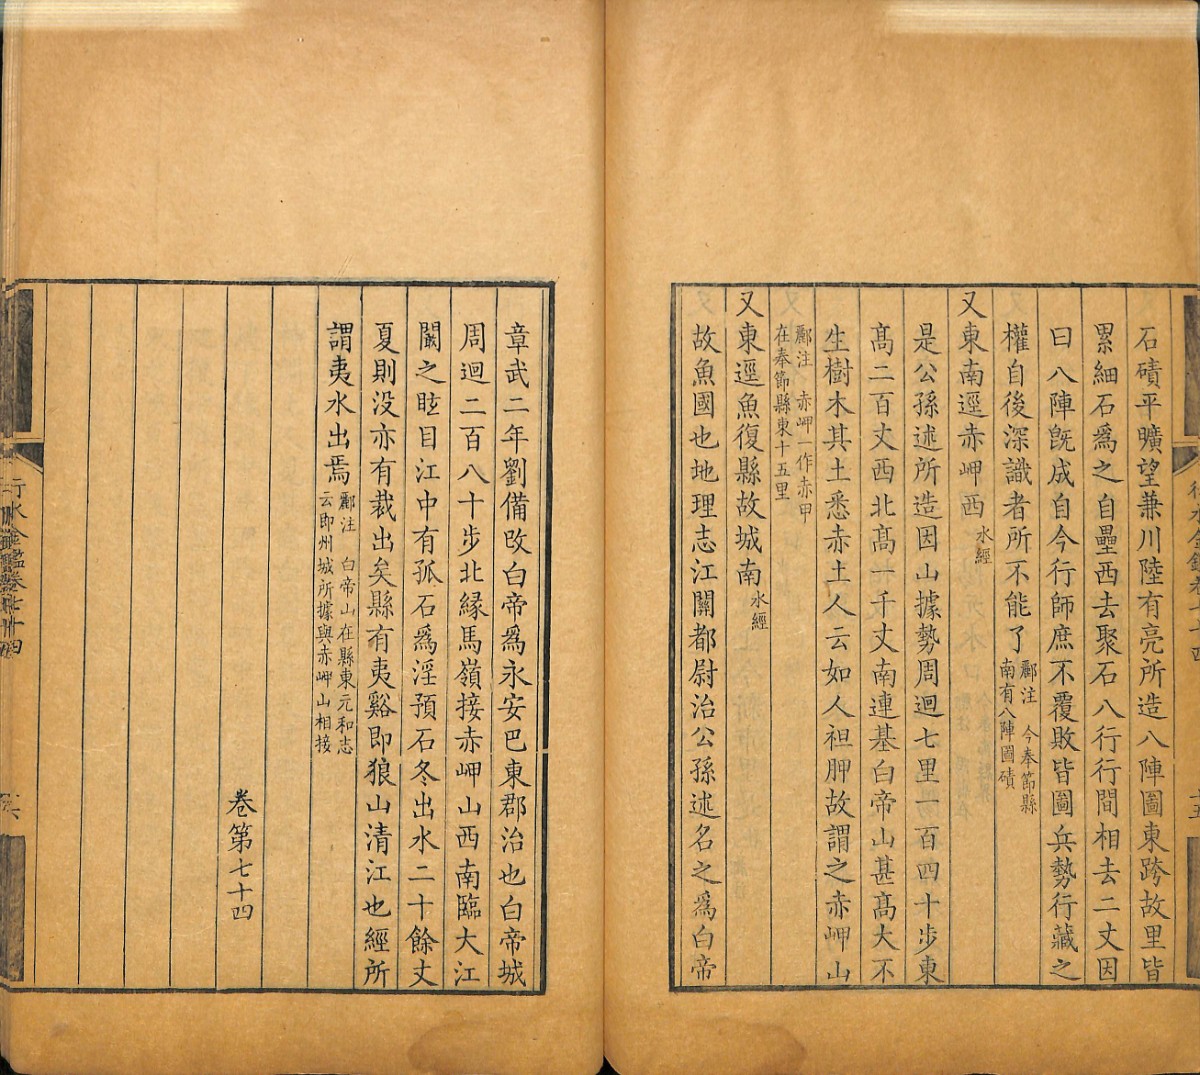 石磧平曠望兼川陸有亮所造八陣圖東跨故里皆
累細石爲之自壘西去聚石八行行間相去二丈因
曰八陣旣成自今行師庶不覆敗皆圖兵勢行藏之
權自後深識者所不能了酈注 今奉節縣
南有八陣圖磧
又東南逕赤岬西水經
是公孫述所造因山據勢周迴七里一百四十步東
髙二百丈西北髙一千丈南連基白帝山甚髙大不
生樹木其土悉赤土人云如人袒胛故謂之赤岬山
酈注 赤岬一作赤甲
在奉節縣東十五里
又東逕魚復縣故城南水經
故魚國也地理志江關都尉治公孫述名之爲白帝
章武二年劉備改白帝爲永安巴東郡治也白帝城
周迴二百八十步北緣馬嶺接赤岬山西南臨大江
闞之眩目江中有孤石爲淫預石冬出水二十餘丈
夏則没亦有裁出矣縣有夷谿即狼山清江也經所
謂夷水出焉酈注 白帝山在縣東元和志
云即州城所據與赤岬山相接
卷第七十四
行水金鑑卷七十四